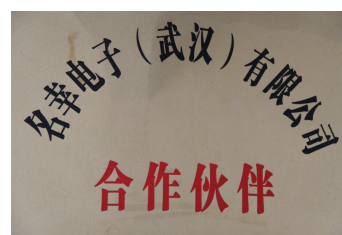 名幸电子（武汉）有限公司
合作伙伴